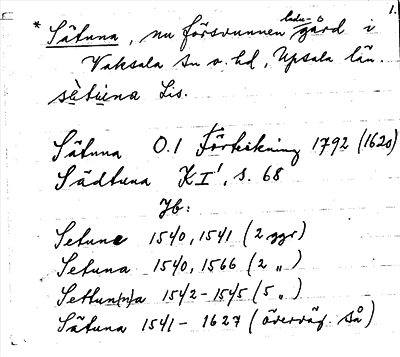 1.
* Sätuna, nu försvunnen ladu-gård i
Vaksala sn o. hd, Upsala län.
sètùna Lis.
Sätuna O.1 Förteckning 1792 (1620)
Sädtuna KI', s. 68
Jb:
Setune 1540, 1541 (2 ggr)
Setuna 1540, 1566 (2 „)
Settun(n)a 1542-1545 (5 „)
Sätuna 1541-1627 (överväg. så)